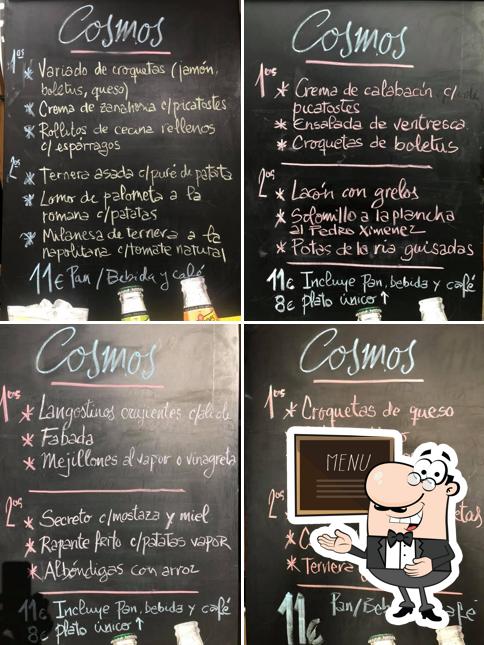 Cosmos
1os * Variado de croquetas (jamón,
boletus, queso)
* Crema de zanahoria c/picatostes
* Rollitos de cecina rellenos
c/espárragos
2os * Ternera asada c/puré de patata
* Lomo de palometa a la
romana c/patatas
* Milanesa de ternera a la
napolitana c/tomate natural
11€ Pan/Bebida y café
Cosmos
1os * Crema de calabacín c/
picatostes
* Ensalada de ventresca
* Croquetas de boletus
2os * Lacón con grelos
* Solomillo a la plancha
al Pedro Ximenez
* Potas de la ria guisadas
11€ Incluye Pan, bebida y café
8€ plato único ↑
Cosmos
1os * Langostinos crujientes
* Fabada
* Mejillones al vapor o vinagreta
2os * Secreto c/mostaza y miel
* Rapante frito c/patatas vapor
* Albóndigas con arroz
11€ Incluye Pan, bebida y café
8€ plato único ↑
Cosmos
1os * Croquetas de queso
MENU
2os
* Ternera
11€ Pan/Beb